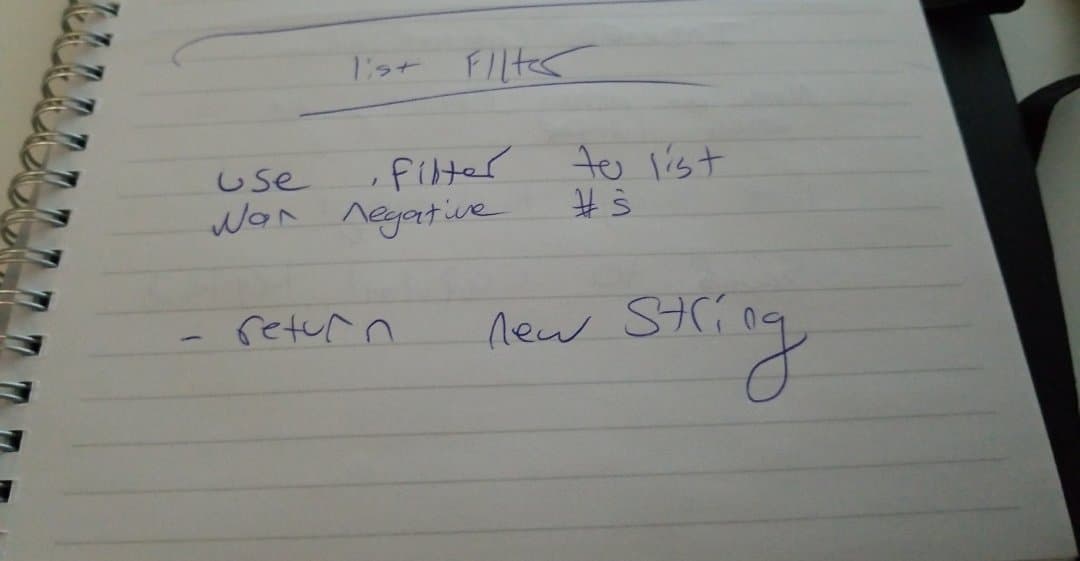 list Filter
use .filter to list
Non negative #s
- return new String